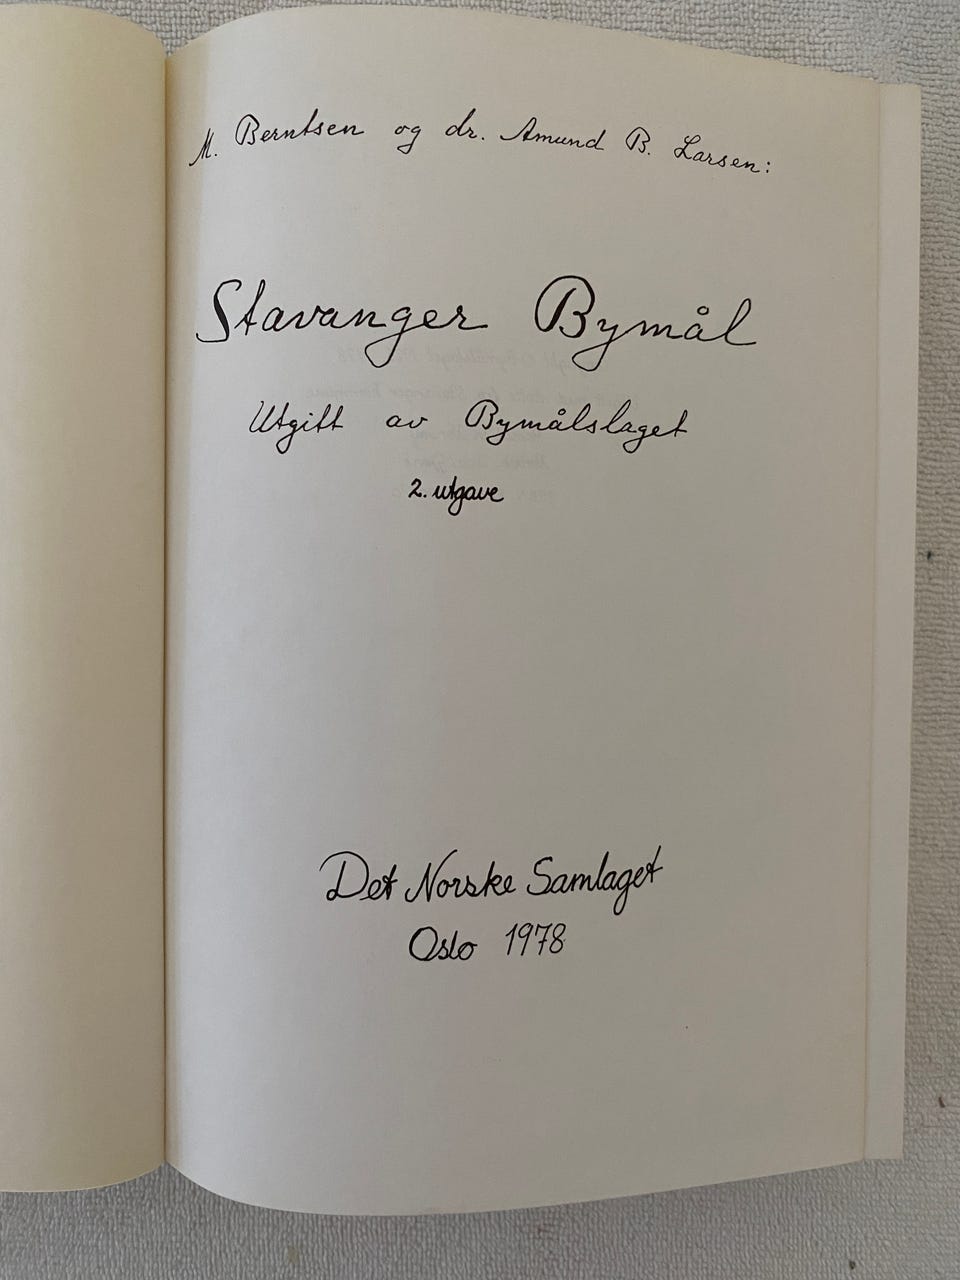 M. Berntsen og dr. Amund B. Larsen:
Stavanger Bymål
Utgitt av Bymålslaget
2. utgave
Det Norske Samlaget
Oslo 1978